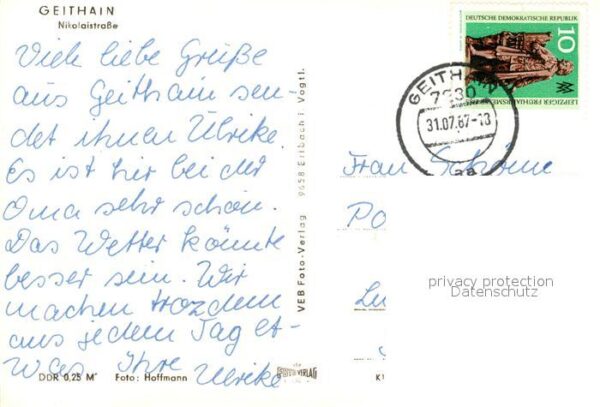 GEITHAIN
Nikolaistraße
Viele liebe Grüße
aus Geithain sen-
det ihnen Ulrike.
Es ist hir bei der
Oma sehr schön.
Das Wetter könnte
besser sein. Wir
machen trozdem
aus jedem Tag et-
was Ihre Ulrike
DDR 0,25 M
Foto: Hoffmann
VEB Foto-Verlag 9658 Erlbach i. Vogtl.
DEUTSCHE DEMOKRATISCHE REPUBLIK
10
GEITHAIN
7230
31.07.87-18
aa
Frau
Po
privacy protection
Datenschutz